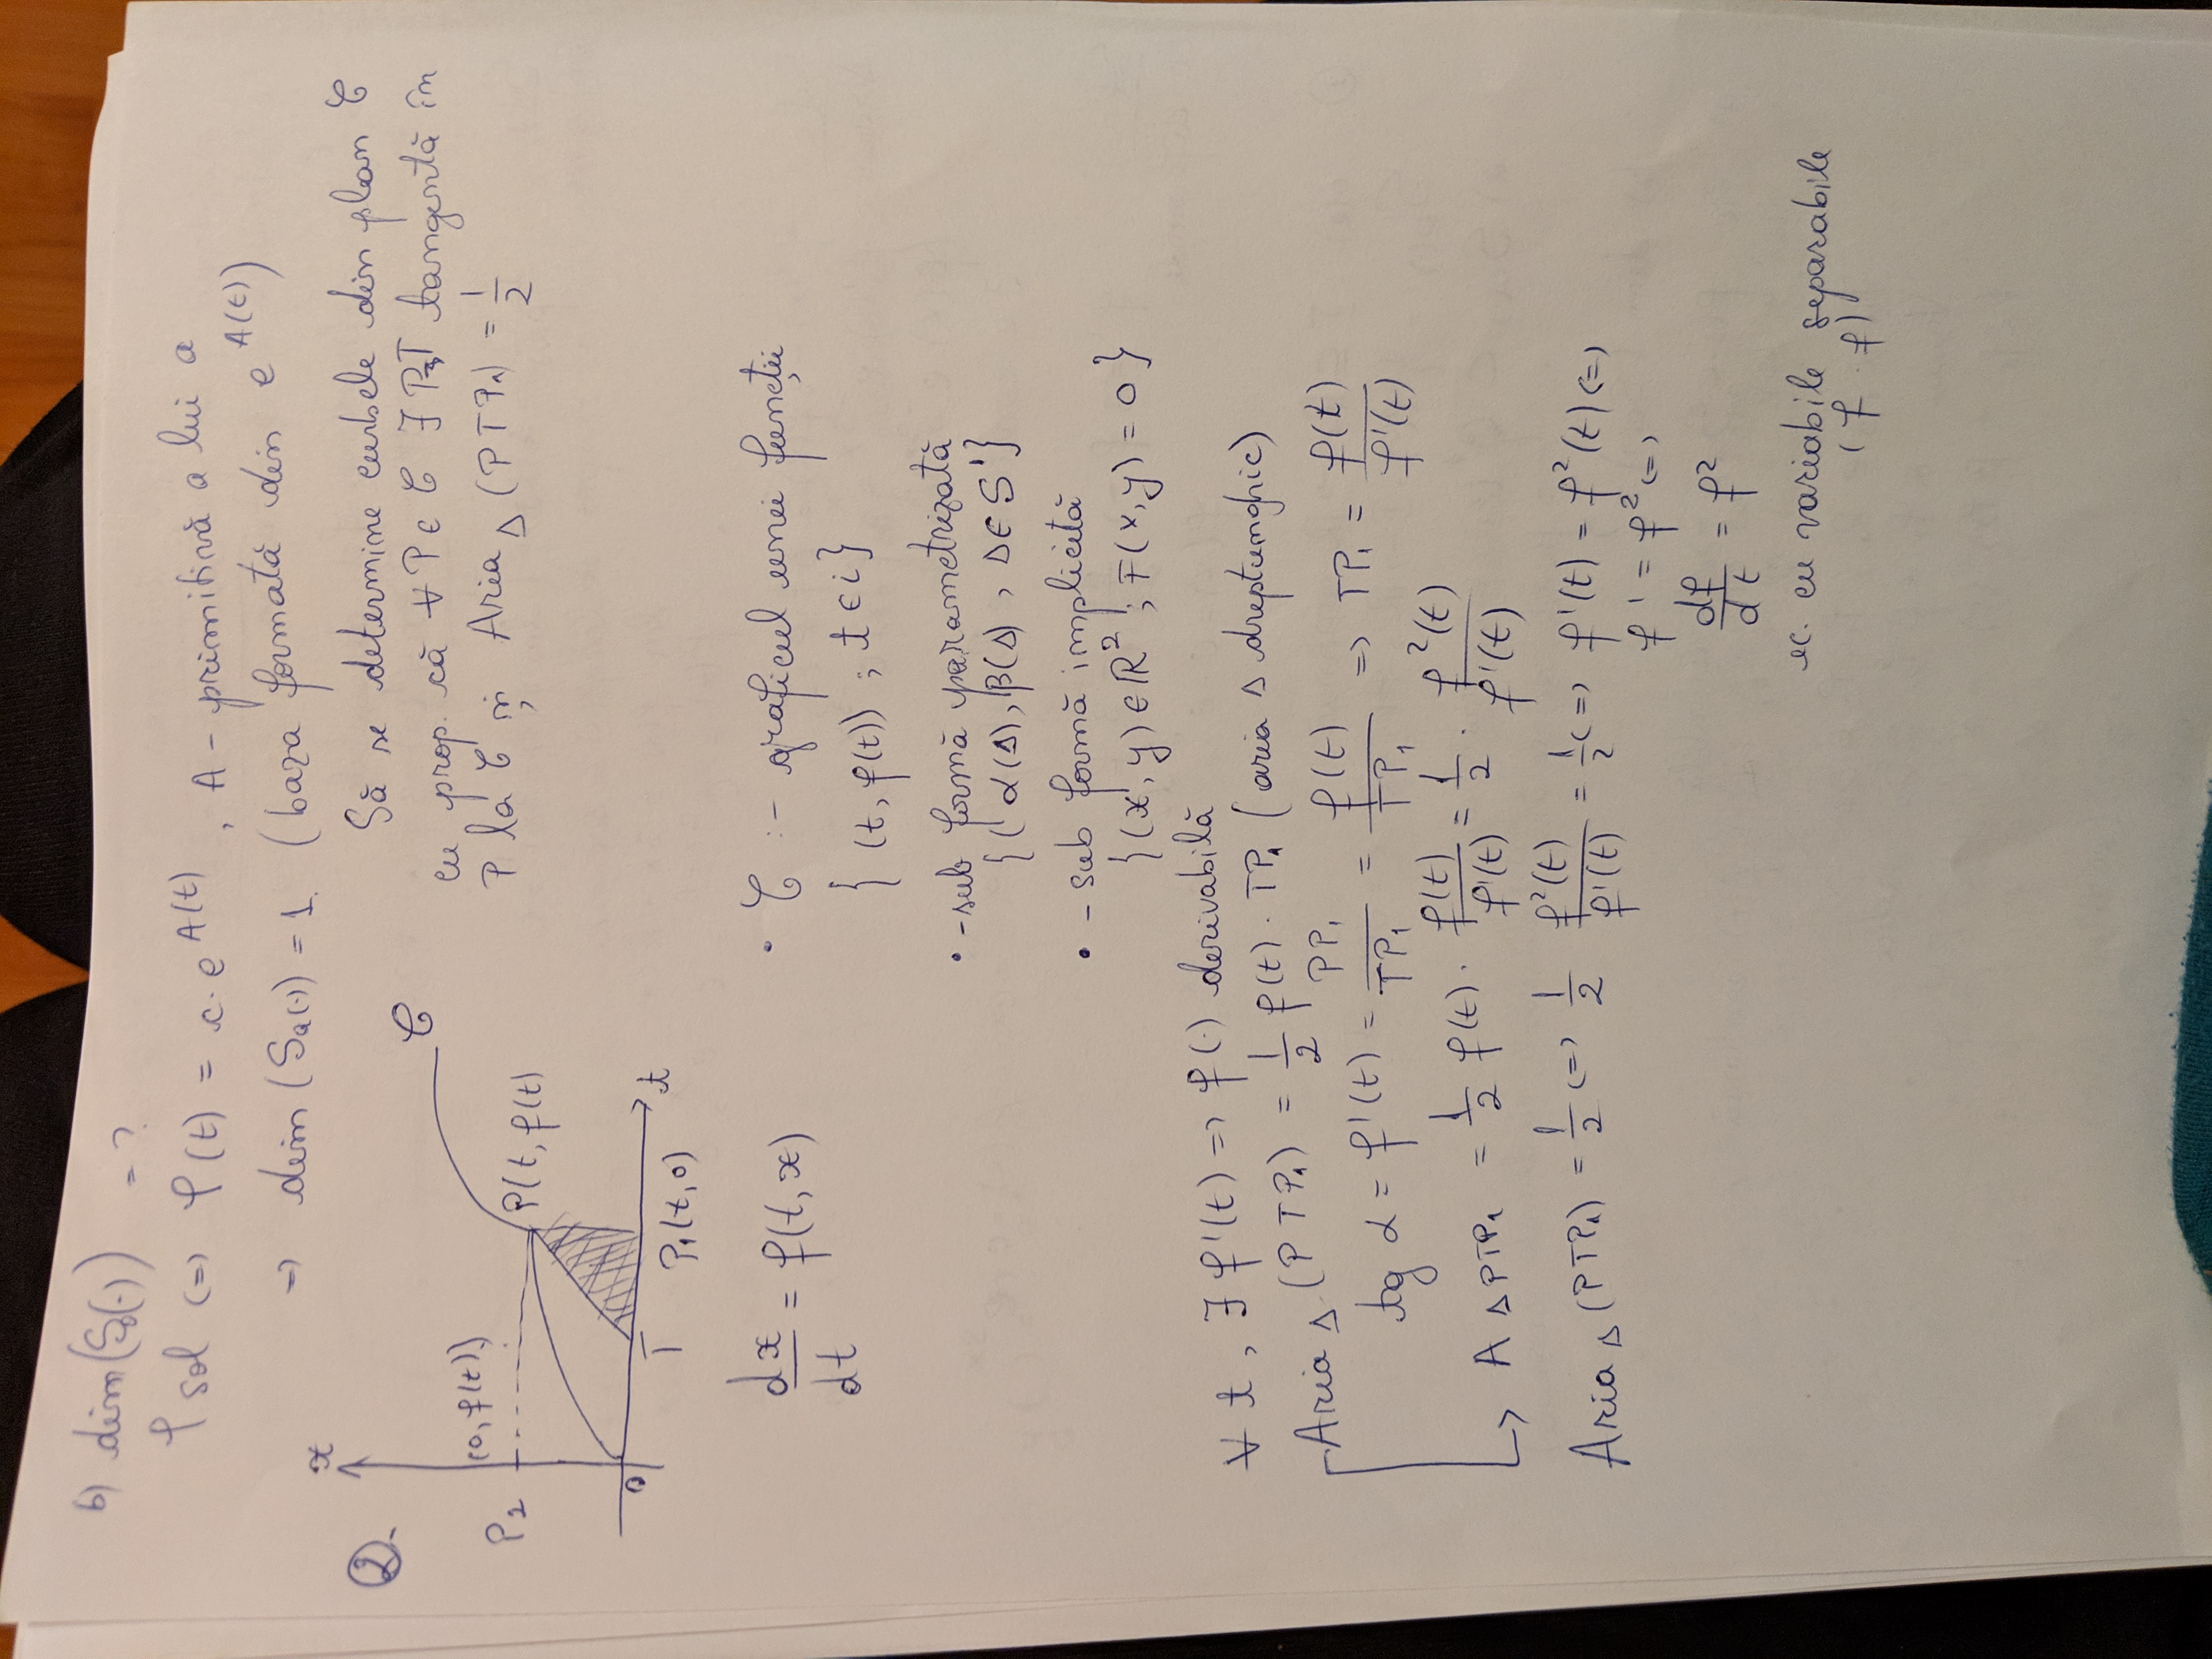 b) dim(Sₐ(·)) = ?
φ sol (=) φ(t) = c·e^A(t) , A - primitivă a lui a
=> dim(Sₐ(·)) = 1. (baza formată din e^A(t))
②.
x
(0, f(t))
P₂
P(t, f(t)
C
0
T
P₁(t,0)
t
Să se determine curbele din plan C
cu prop. că ∀ P ∈ C ∃ PT tangentă în
P la C și Aria Δ (PTP₁) = 1/2
dx/dt = f(t, x)
• C :- graficul unei funcții
{ (t, f(t)) ; t ∈ i }
• - sub formă parametrizată
{( α(s), β(s) , s ∈ S' }
• - sub formă implicită
{(x, y) ∈ ℝ² ; F(x,y) = 0 }
∀ t , ∃ f'(t) => f(·) derivabilă
Aria Δ (PTP₁) = 1/2 f(t) · TP₁ (aria Δ dreptunghic)
tg α = f'(t) = PP₁/TP₁ = f(t)/TP₁ => TP₁ = f(t)/f'(t)
A Δ PTP₁ = 1/2 f(t) · f(t)/f'(t) = 1/2 · f²(t)/f'(t)
Aria Δ (PTP₁) = 1/2 (=) 1/2 f²(t)/f'(t) = 1/2 (=) f'(t) = f²(t) (=)
f' = f² (=)
df/dt = f²
ec. cu variabile separabile